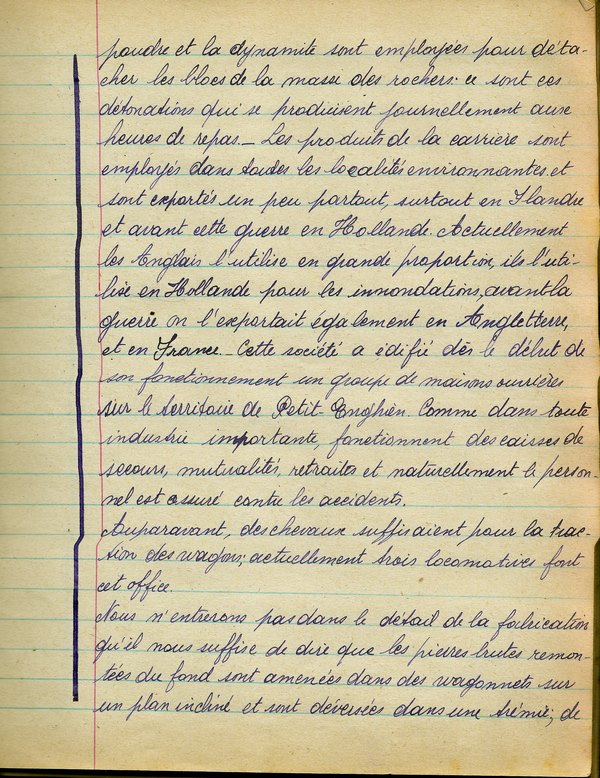 poudre et la dynamite sont employées pour déta-
cher les blocs de la masse des rochers. ce sont ces
détonations qui se produisent journellement aux
heures de repas._ Les produits de la carrière sont
employés dans toutes les localités environnantes et
sont exportés un peu partout, surtout en Flandre
et avant cette guerre en Hollande. Actuellement
les Anglais l'utilise en grande proportion, ils l'uti-
lise en Hollande pour les innondations, avant la
guerre on l'exportait également en Angletterre,
et en France._ Cette société a édifié dès le début de
son fonctionnement un groupe de maisons ouvrières
sur le territoire de Petit-Enghien. Comme dans toute
industrie importante, fonctionnent des caisses de
secours, mutualités, retraites et naturellement le person-
nel est assuré contre les accidents.
Auparavant, des chevaux suffisaient pour la trac-
tion des wagons; actuellement trois locomotives font
cet office.
Nous n'entrerons pas dans le détail de la fabrication
qu'il nous suffise de dire que les pierres brutes remon-
tées du fond sont amenées dans des wagonnets sur
un plan incliné et sont déversées dans une trémie; de